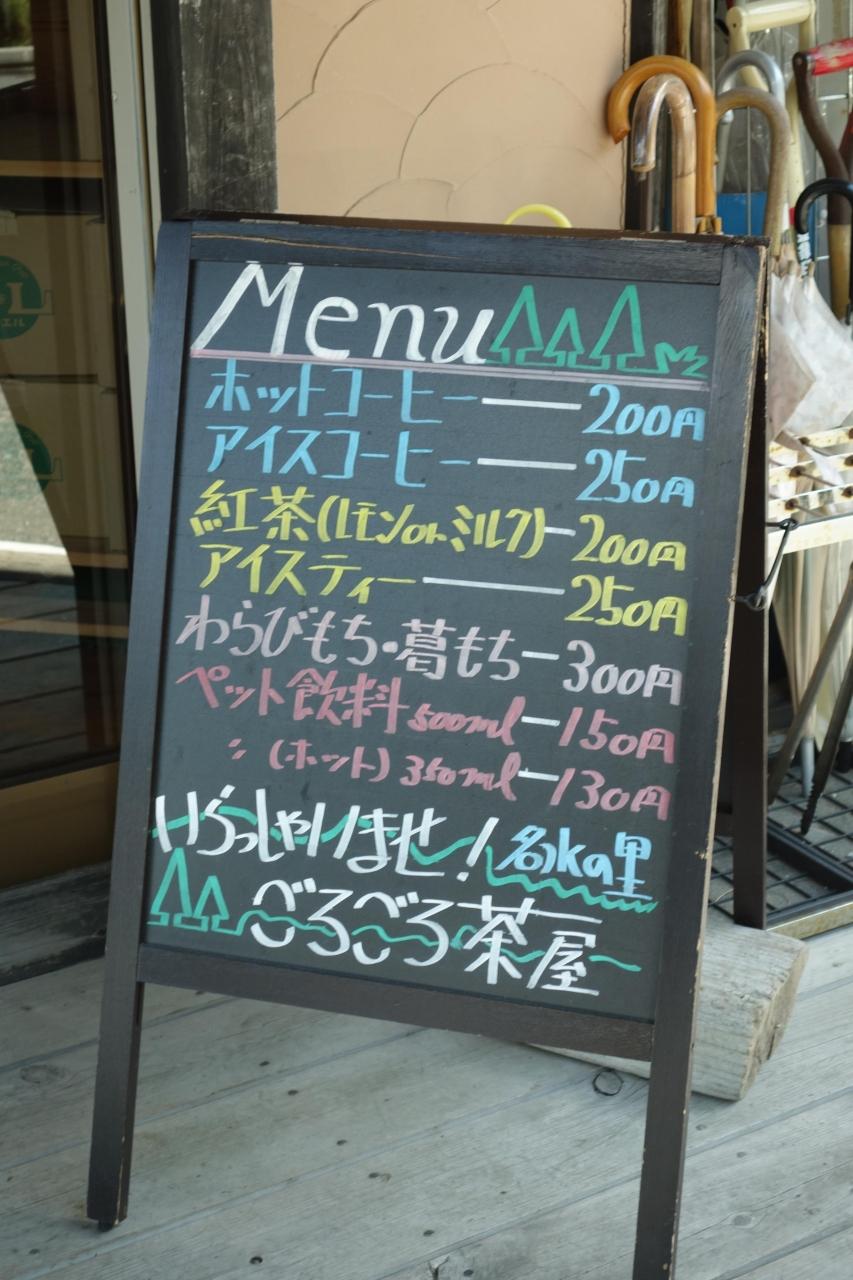 Menu
ホットコーヒー ― 200円
アイスコーヒー ― 250円
紅茶(レモンorミルク) ― 200円
アイスティー ― 250円
わらびもち・葛もち ― 300円
ペット飲料 500ml ― 150円
〃 (ホット) 350ml ― 130円
いらっしゃいませ! 名ka里
ごろごろ茶屋